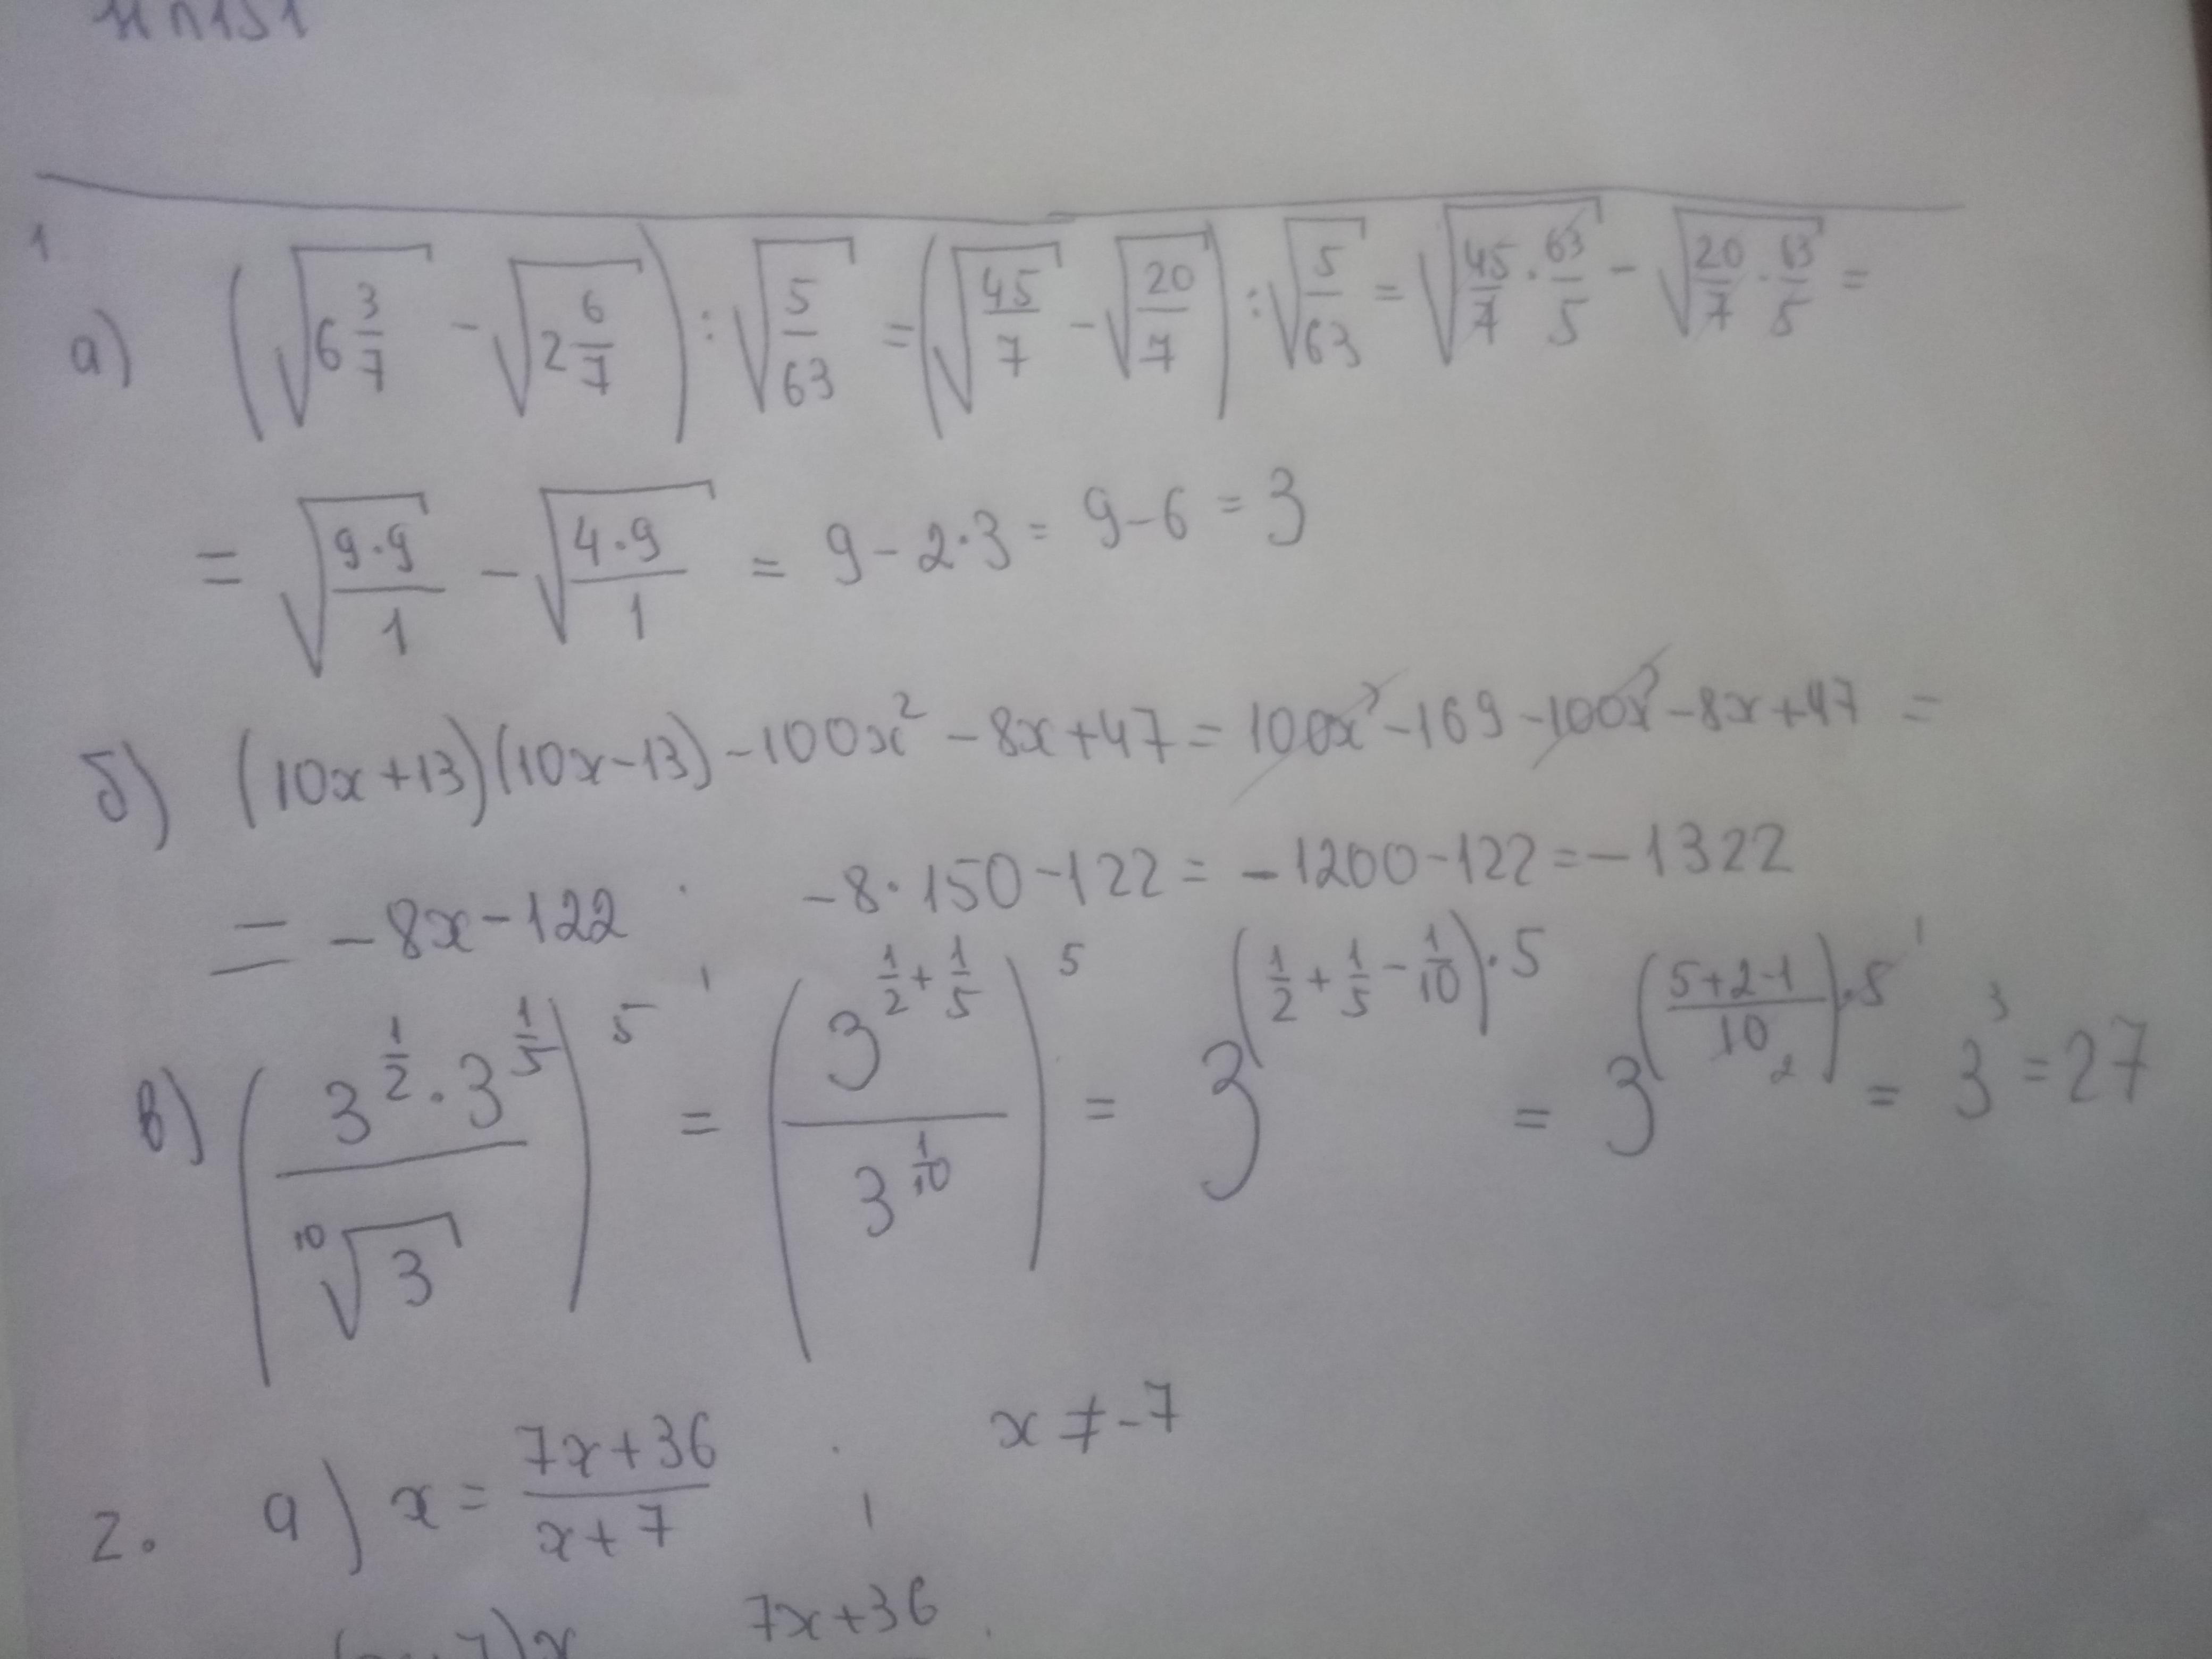 1
а) (√(6 3/7) - √(2 6/7)) : √(5/63) = (√(45/7) - √(20/7)) : √(5/63) = √(45/7 · 63/5) - √(20/7 · 63/5) =
= √(9·9/1) - √(4·9/1) = 9 - 2·3 = 9 - 6 = 3
б) (10x+13)(10x-13) - 100x² - 8x + 47 = 100x² - 169 - 100x² - 8x + 47 =
= -8x - 122 ; -8·150 - 122 = -1200 - 122 = -1322
в) (3^(1/2) · 3^(1/5) / ¹⁰√3)^5 = (3^(1/2 + 1/5) / 3^(1/10))^5 = 3^((1/2 + 1/5 - 1/10)·5) = 3^(((5+2-1)/10)·5) = 3³ = 27
2. а) x = (7x+36)/(x+7) ; x ≠ -7
7x+36